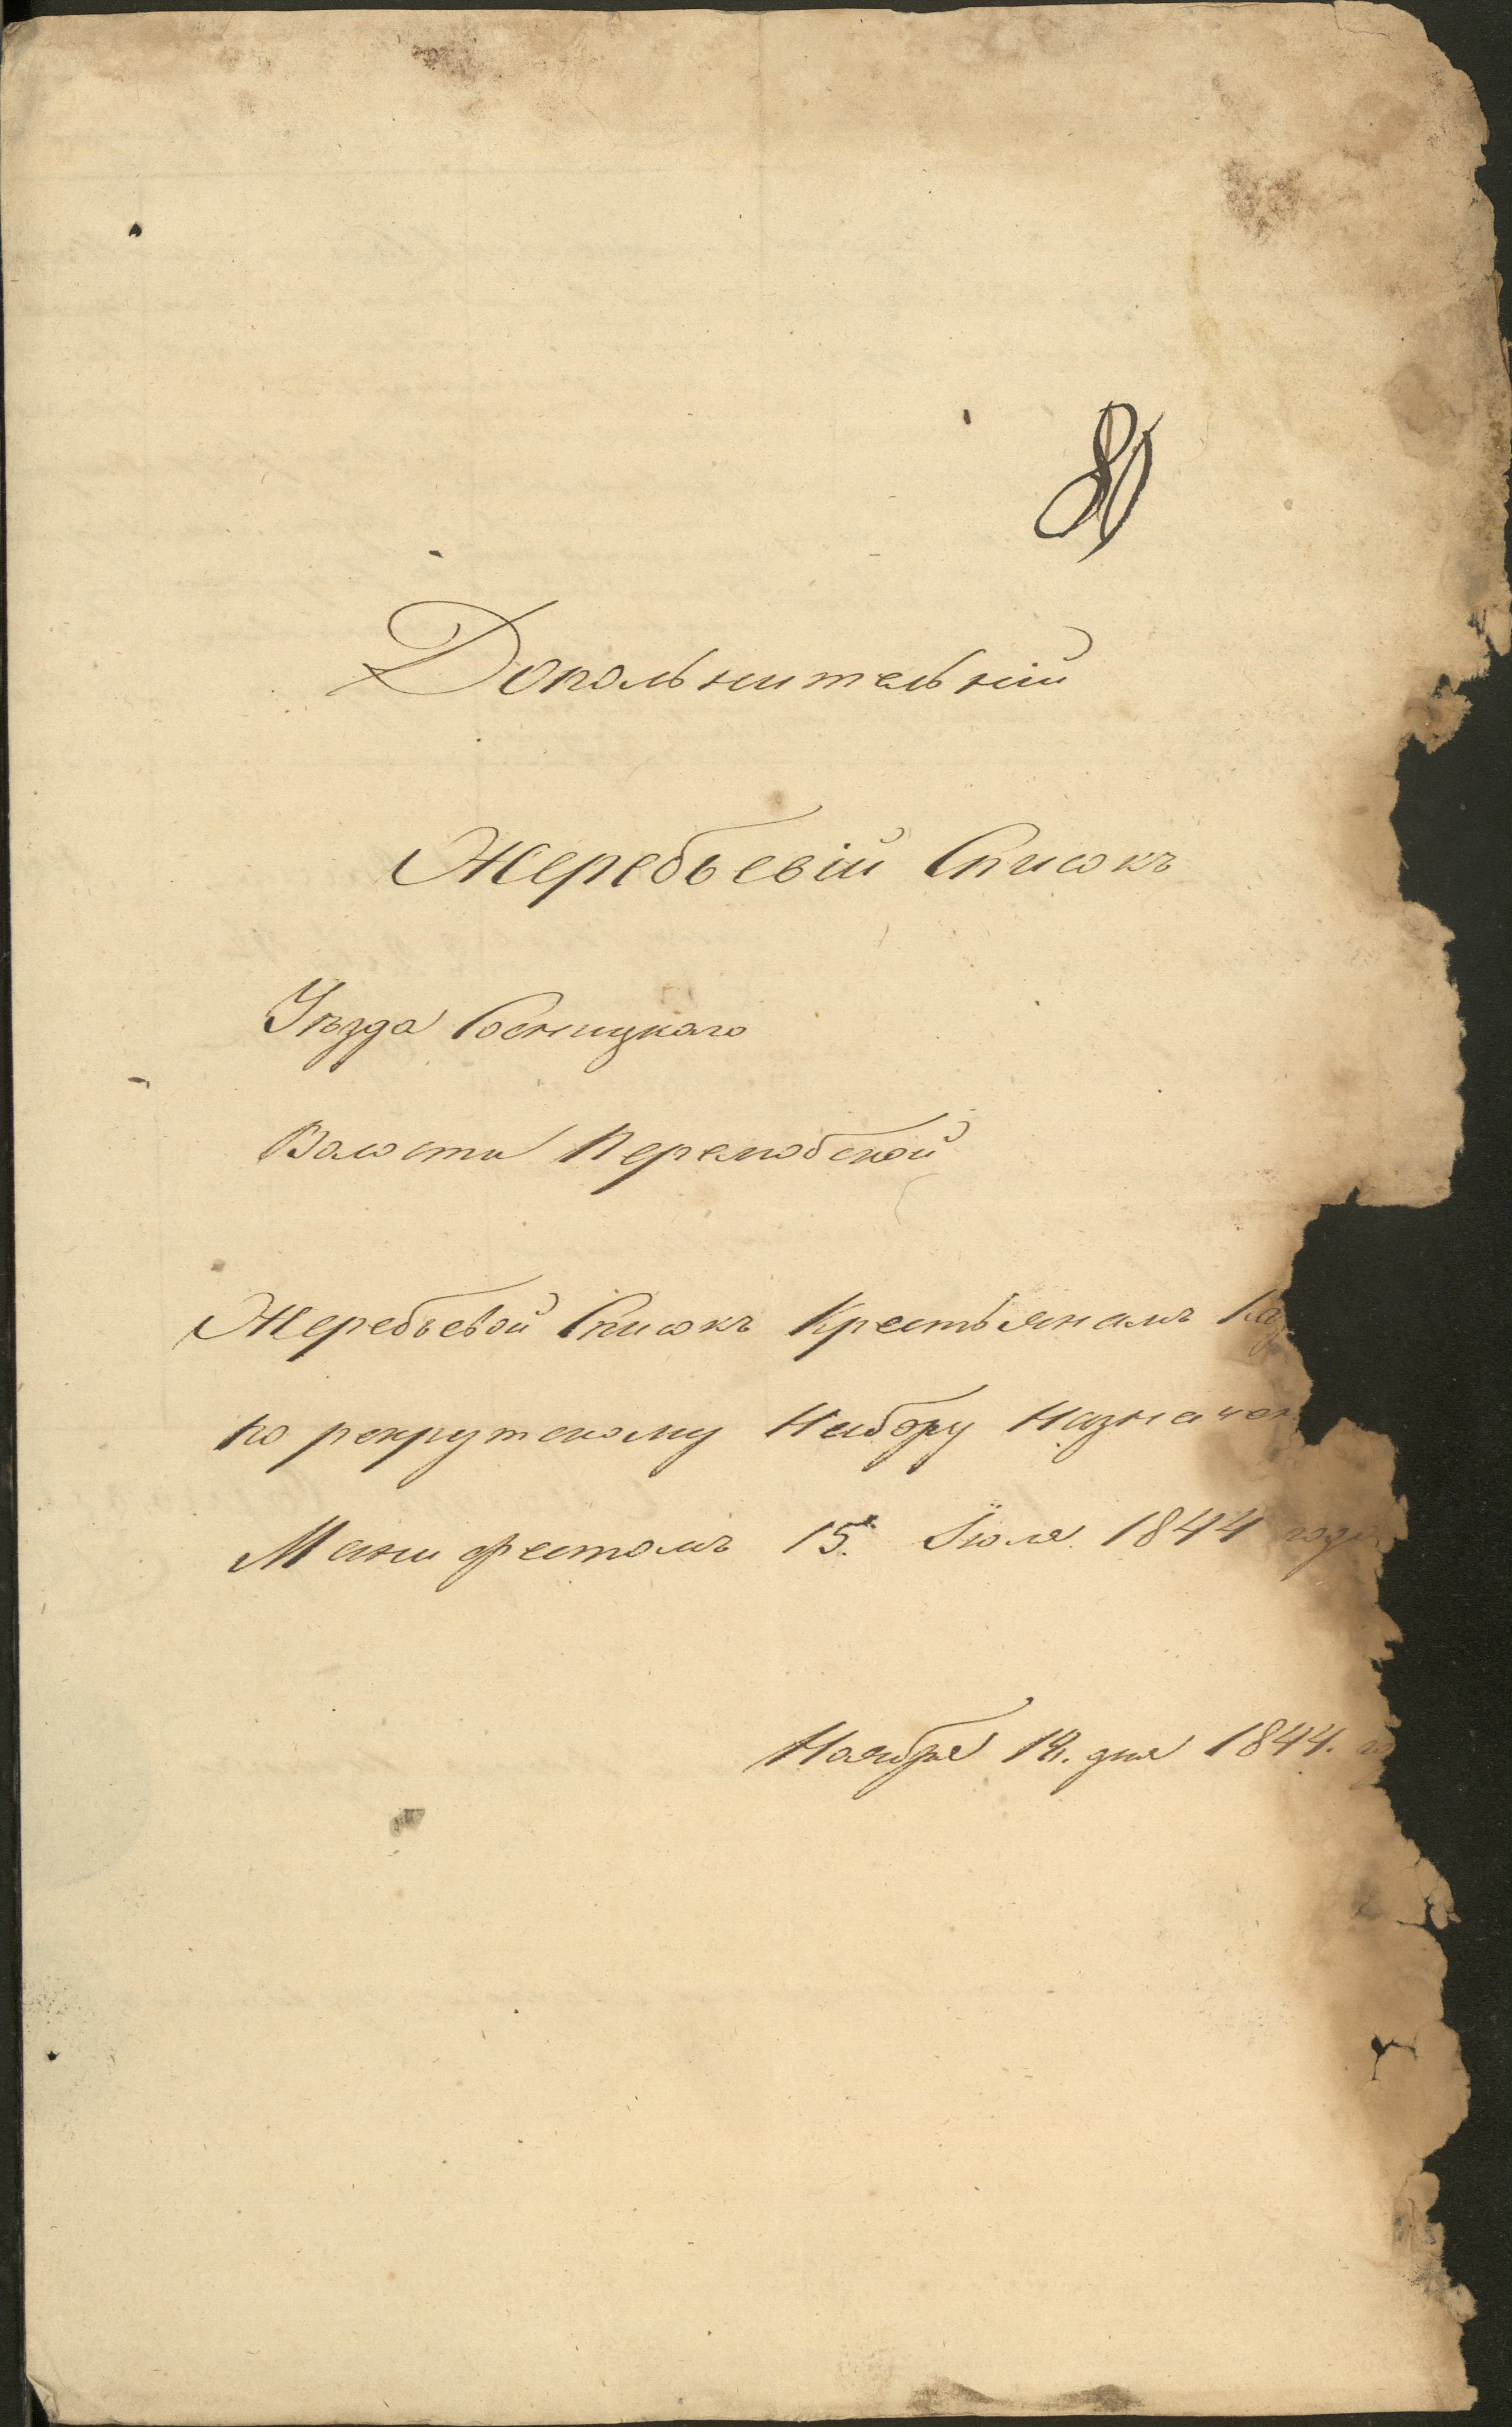 80
Допольнительній
Жеребьевій Списокъ
Уѣзда Сосницкаго
Волости Перелюбской
Жеребьевой Списокъ Крестьянамъ Каз
по рекрутскому Набору Назначен
Манифестомъ 15. Іюля 1844 года
Ноября 18. дня 1844. го